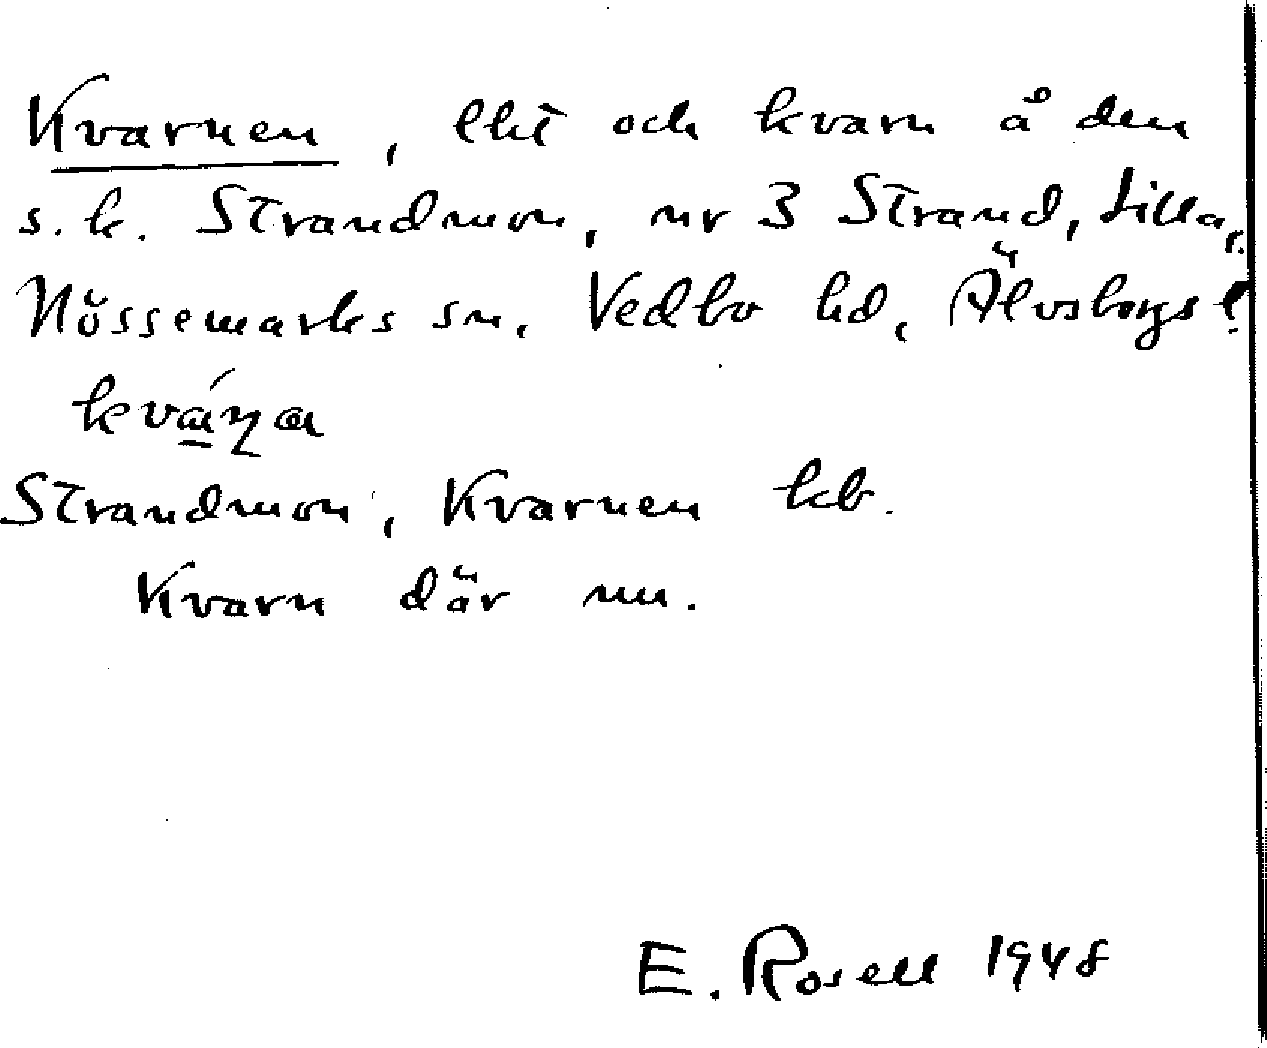 Kvarnen, lht och kvarn å den
s.k. Strandmon, nr 3 Strand, Lilla,
Nössemarks sn, Vedbo hd, Älvsborgs l.
Strandmon, Kvarnen kb.
Kvarn där nu.
E. Rosell 1948